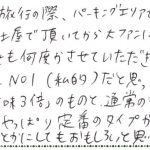 旅行の際、パーキングエリアで
土屋で頂いてから大ファンに
も何度かさせていただ
NO1（私的）だと思
味3倍」のものと、通常の
やっぱり定番のタイプが
とうにしてもおもしろいと思